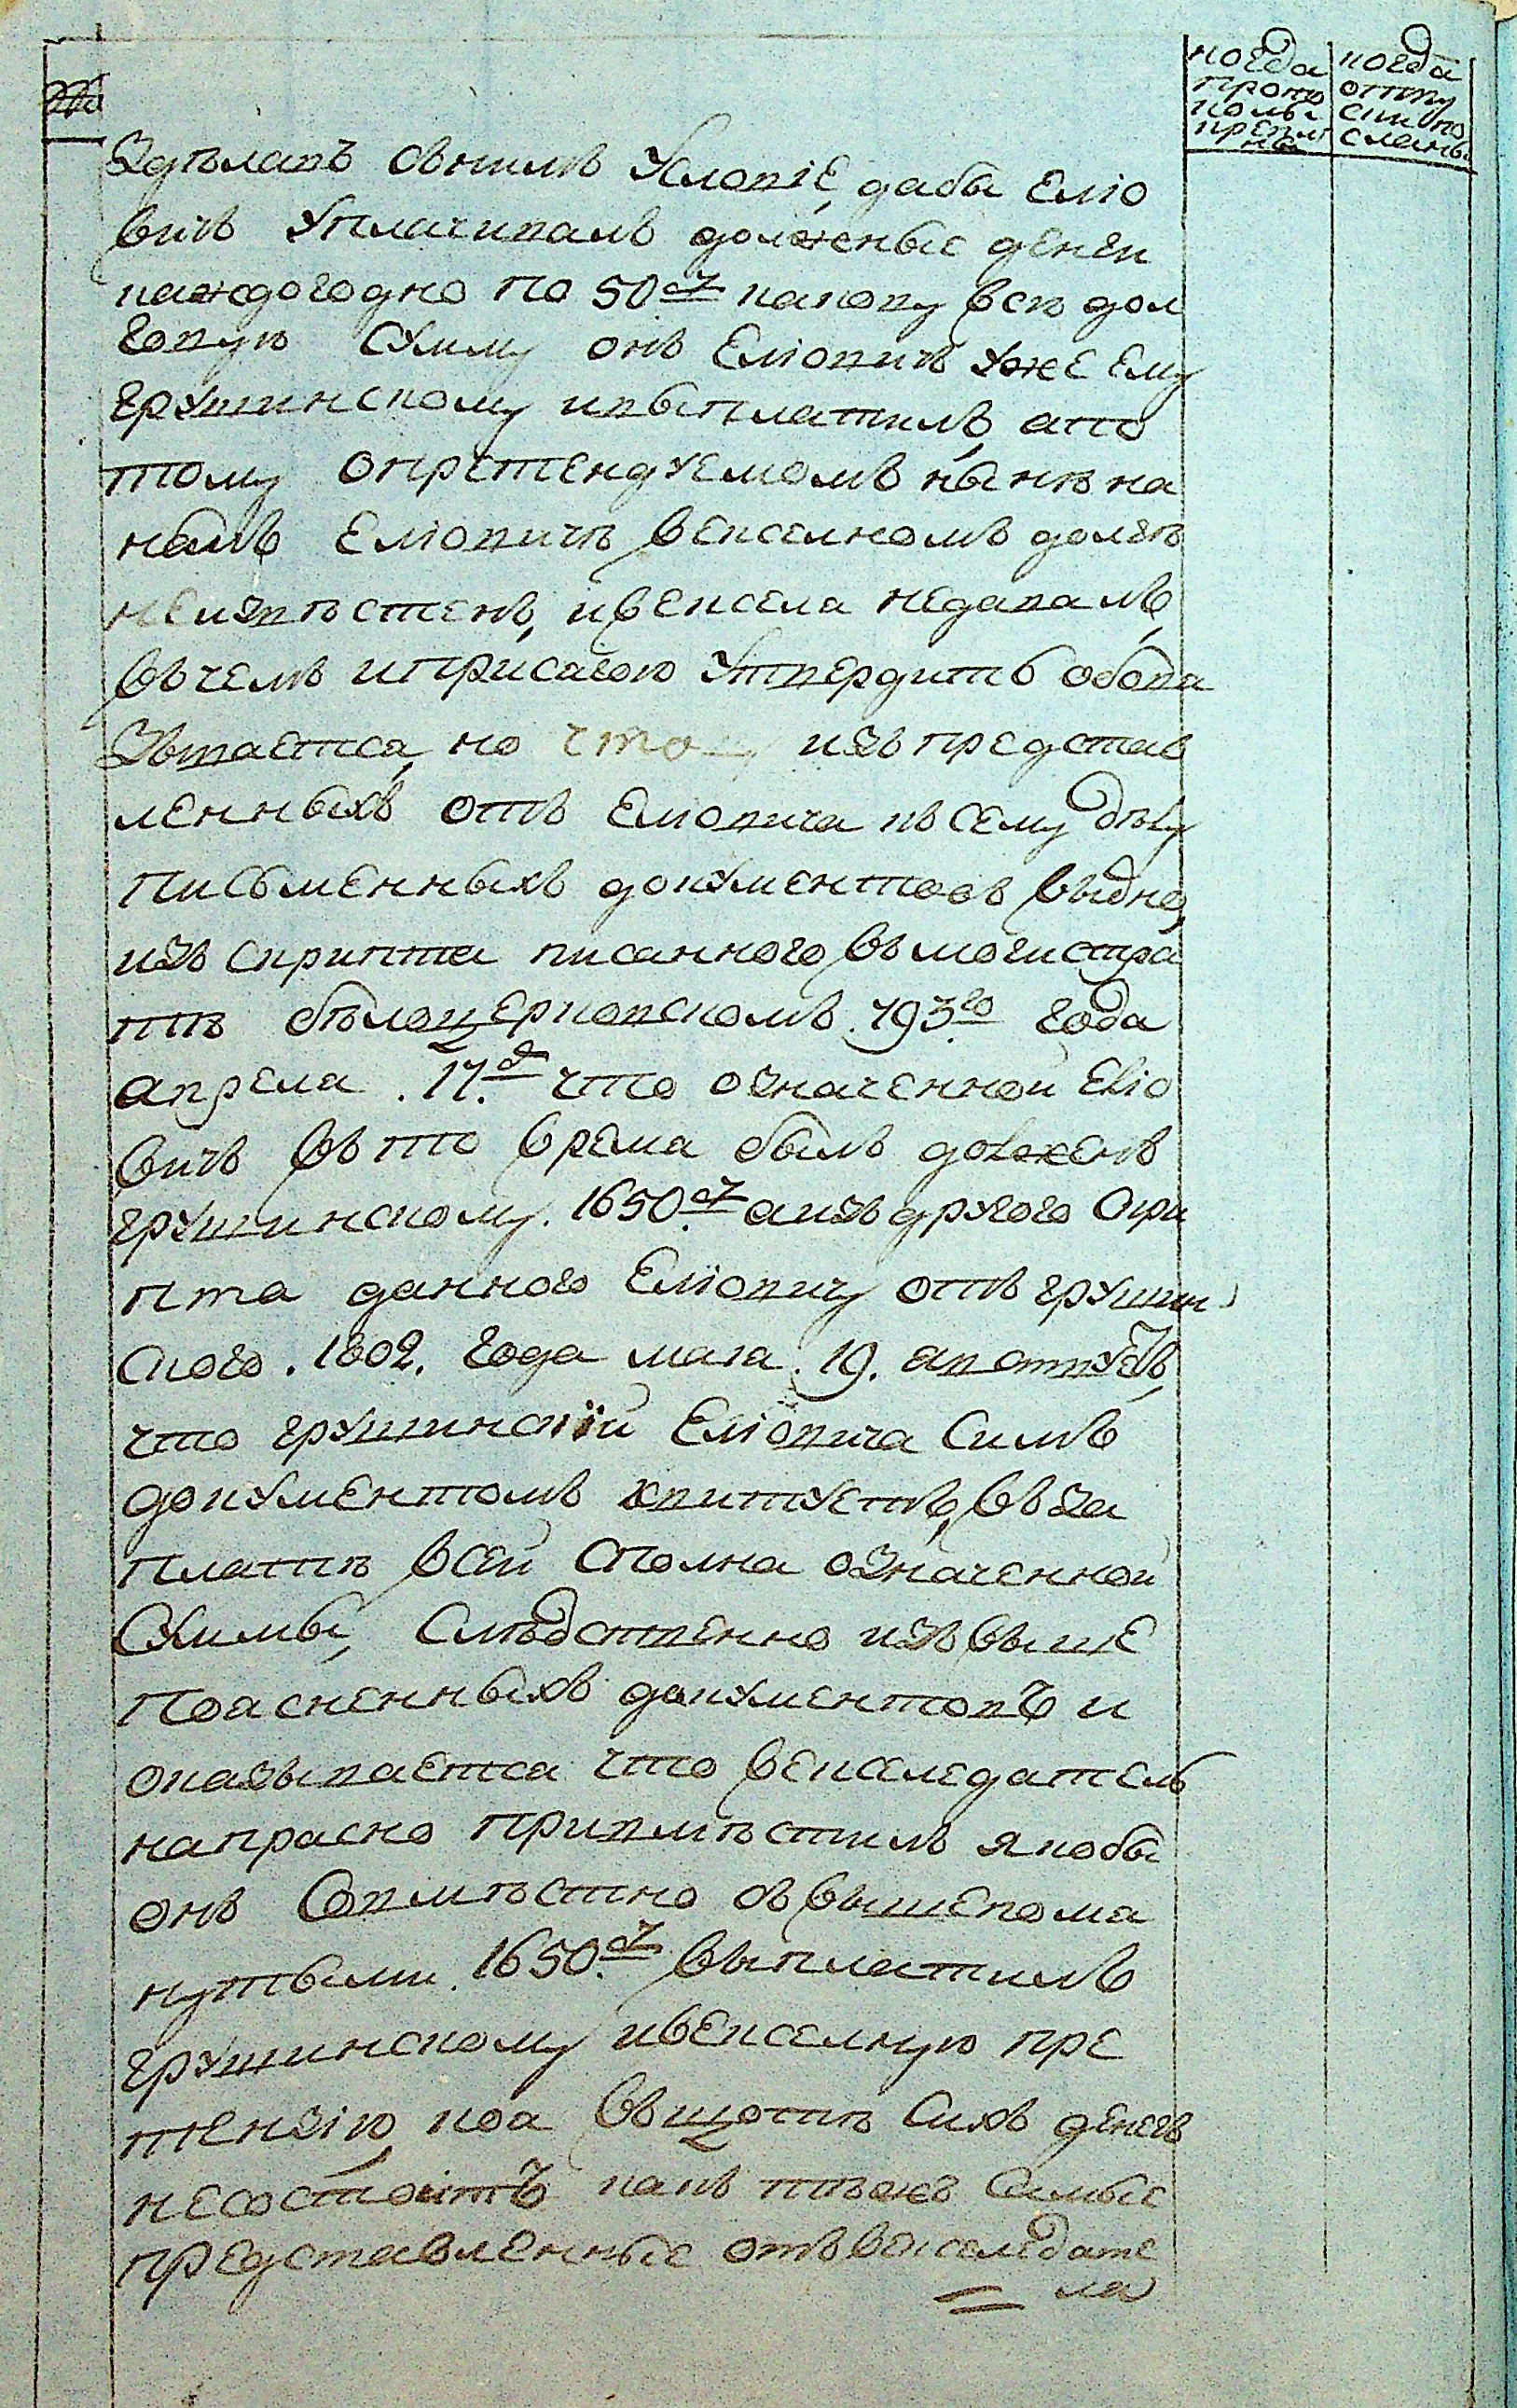 когда
прото
колы
крепле
ны
когда
отпу
ски по
сланы
Зделавъ снимъ Условіе, дабы Еліо
вичъ Уплачивалъ долженые денги
каждогодно по 50 ч какову всю дол
говую Сумму онъ Еліовичъ уже ему
грушинскому ивыплатилъ, апо
тому опретендуемомъ нынѣ на
немъ Еліовичѣ вексельномъ долгѣ
неизвѣстенъ, ивекселя недавалъ,
вчемъ иприсягою Утвердить обова
зывается, но что изъ представ
ленныхъ отъ Еліовича ксему дѣлу
письменныхъ документовъ выдно,
изъ скрипта писанного вмагистра
тѣ бѣлоцерковскомъ 793го года
апреля 17.д что означенной Еліо
вичъ въ то время былъ долженъ
грушинскому 1650.ч аизъ другого Скри
пта данного Еліовичу отъ грушин
ского 1802. года мая 19. явствуетъ,
что грушинскій Еліовича Симъ
документомъ квитуетъ, въ за
платѣ всей Сполна означенной
Суммы, Слѣдственно изъ выше
поясненныхъ документовъ и
оказывается что векселедатель
напрасно привмѣстилъ якобы
онъ Совмѣстно свышепомя
нутыми 1650.ч выплатилъ
грушинскому ивексельную пре
тензію, коя въщотѣ Сихъ денегъ
несостоитъ какъ тѣжъ Самые
представленные отъ векселедате
ля